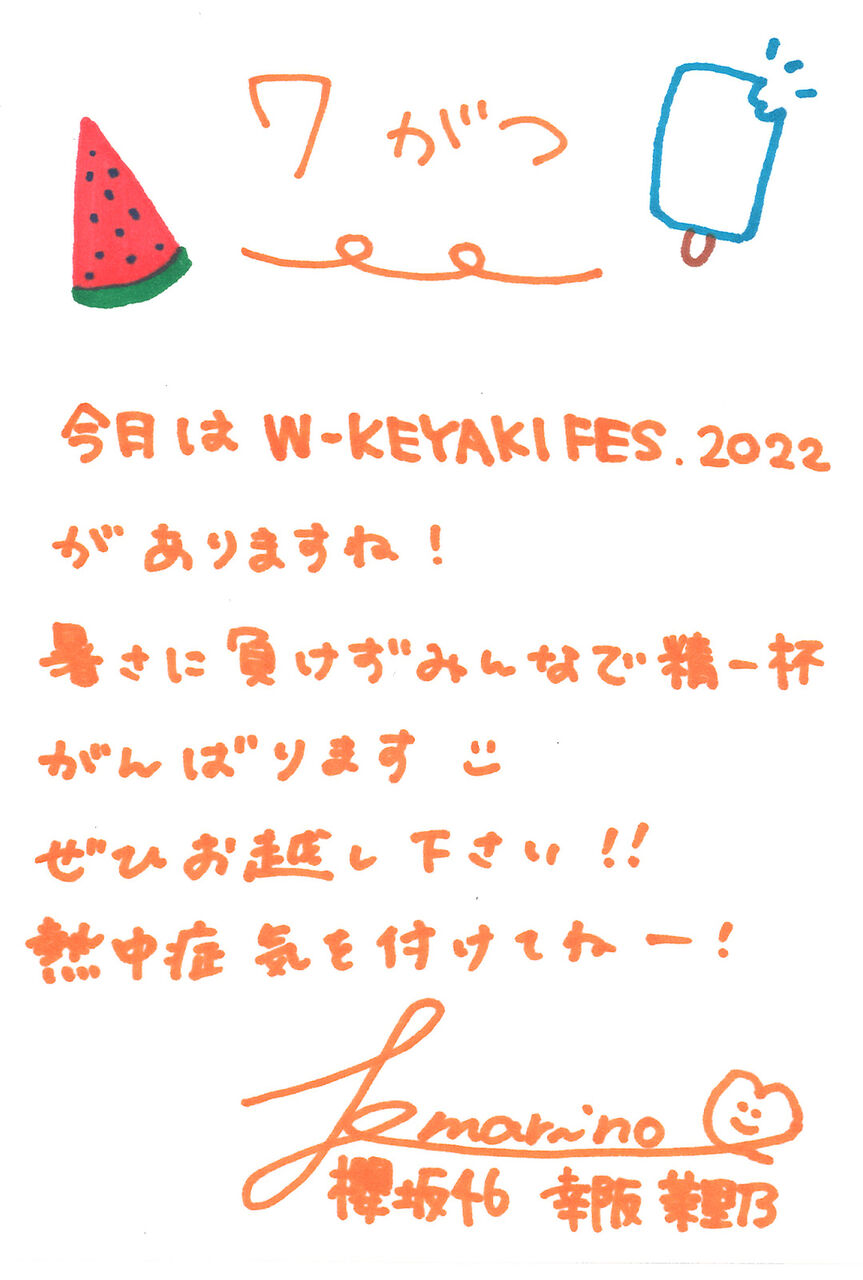 7がつ
今月は W-KEYAKI FES. 2022
がありますね!
暑さに負けずみんなで精一杯
がんばります
ぜひお越し下さい!!
熱中症 気を付けてねー!
marino
櫻坂46 幸阪 茉里乃